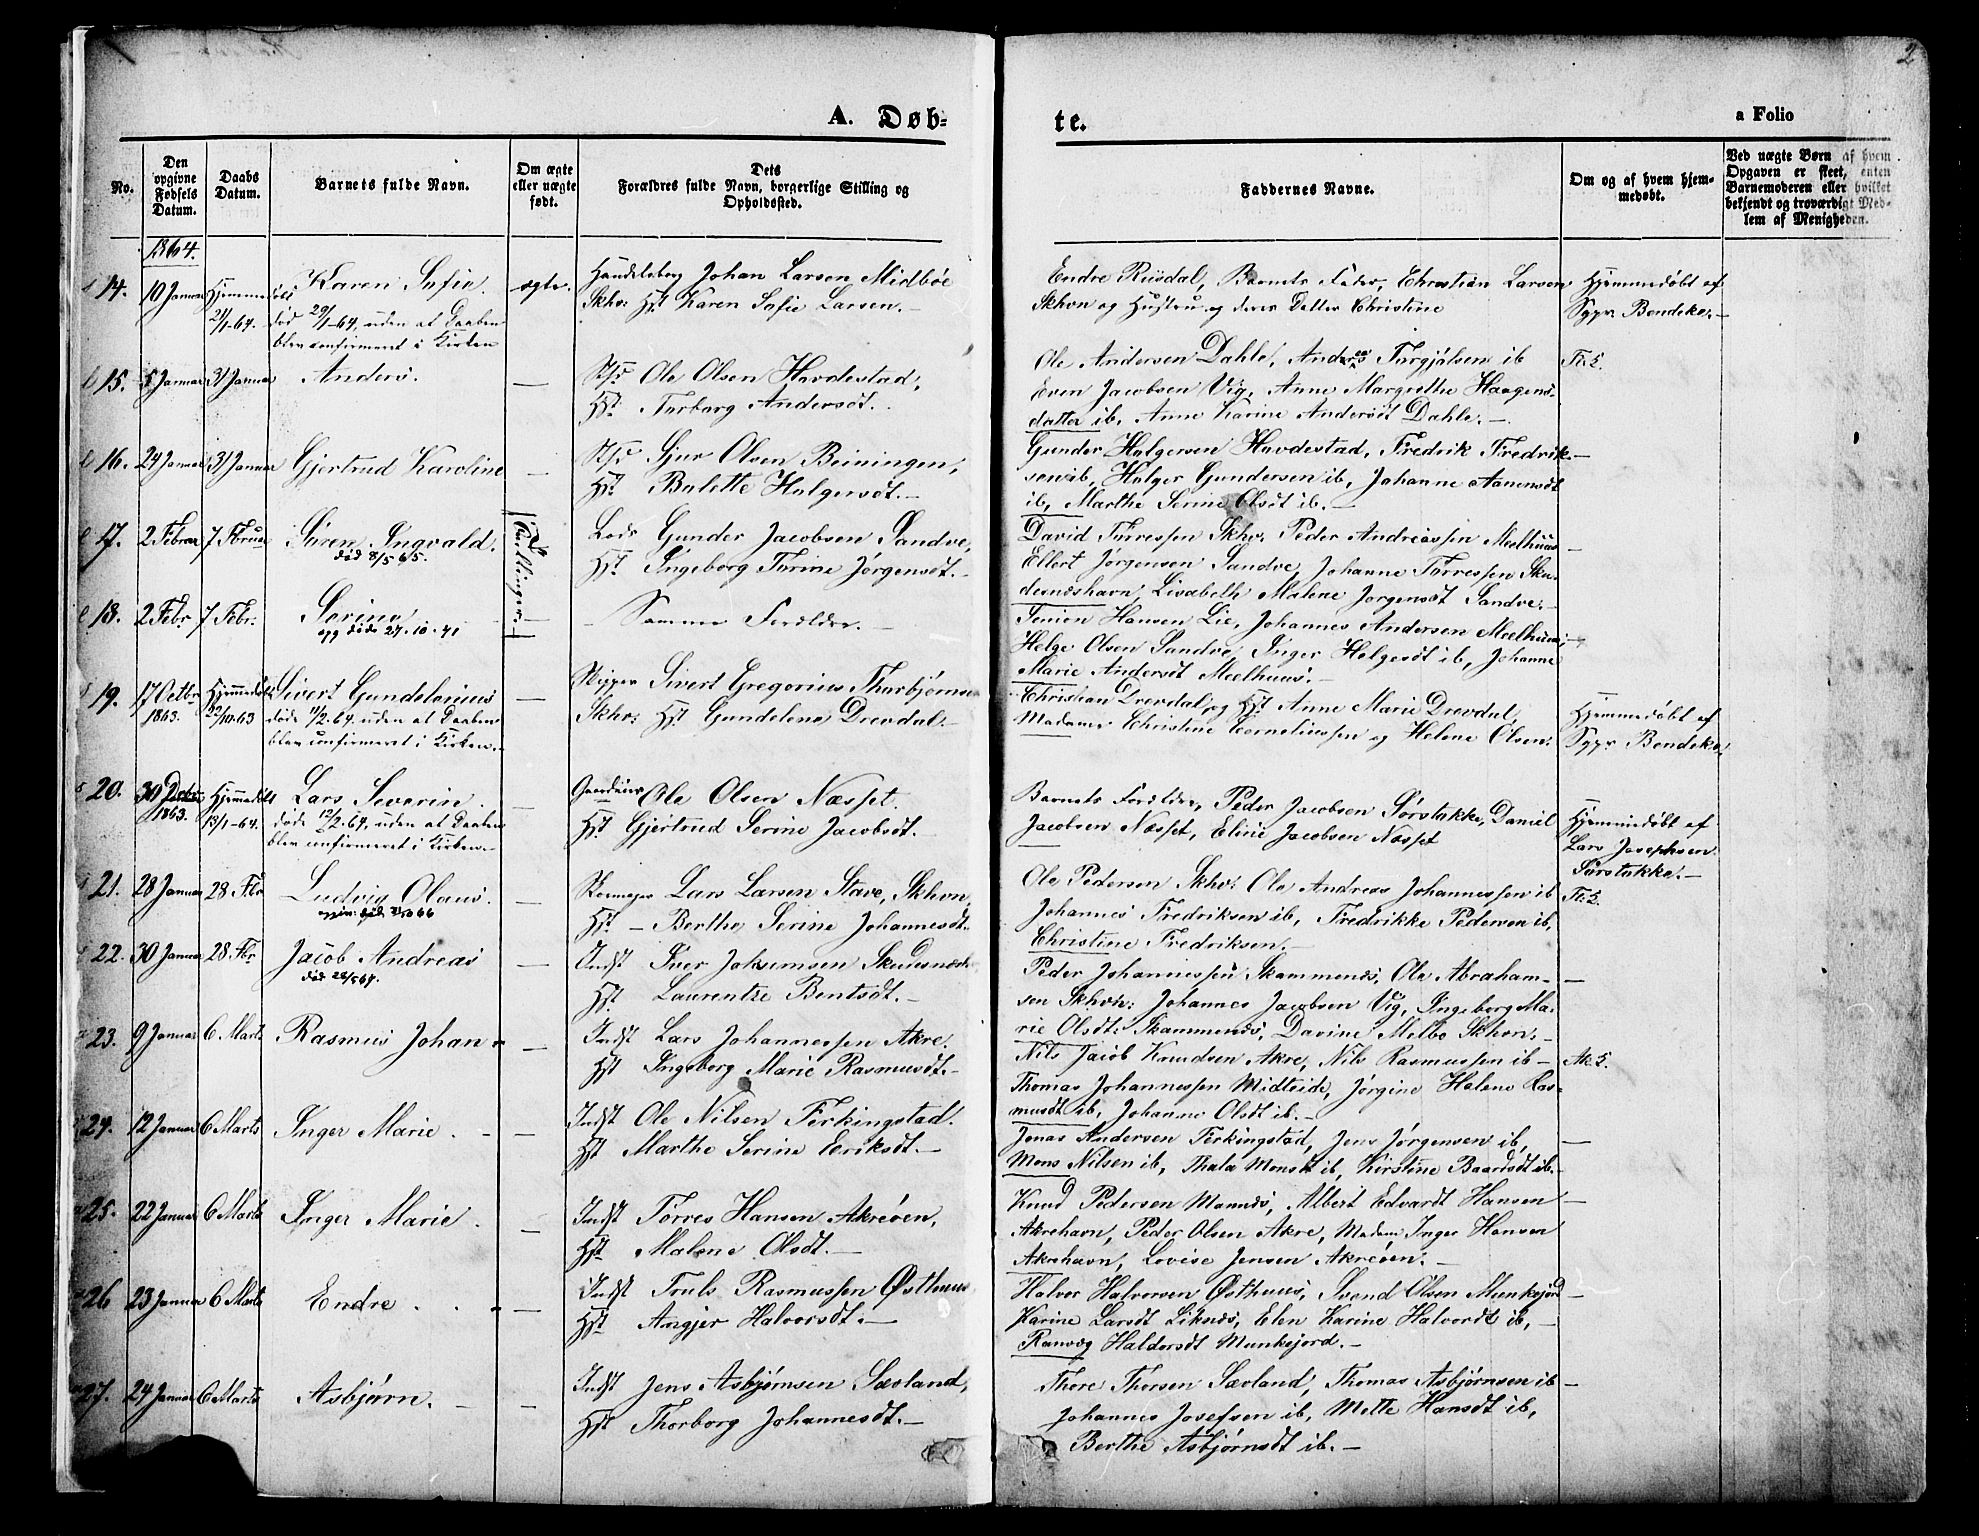 2
A. Døb-
te.
a Folio
No.
Den
opgivne
Fødsels
Datum.
Daabs
Datum.
Barnets fulde Navn.
Om ægte
eller uægte
født.
Dets
Forældres fulde Navn, borgerlige Stilling og
Opholdssted.
Faddernes Navne.
Om og af hvem hjem-
medøbt.
Ved uægte Børn af hvem
Opgaven er skeet, enten
Barnemoderen eller hvilket
bekjendt og troværdigt Med-
lem af Menigheden.
1864.
14. 10 Januar Hjemmedöbt Karen Sofie. ægte. Handelsborg Johan Larsen Midböe
21/1-64. död 29/1-64, uden at Daaben Skhv: Hst Karen Sofie Larsen.-
blev confirmeret i Kirken
Endre Risdal, Barnets Fader, Christian Larsen
Skhvn og Hustru og deres Datter Christine
Hjemmedøbt af
Sgpr Bendeke.-
15. 5 Januar 31 Januar Anders. — Ole Olsen Hovdestad,
Hst Torborg Andersdt.
Ole Andersen Dahle, Anders Torgjølsen ib
Even Jacobsen Vig, Anne Margrethe Haagens-
datter ib, Anne Karine Andersdt Dahle.-
16. 24 Januar 31 Januar Gjertrud Karoline — Gjer Olsen Beiningen,
Hst Bolette Holgersdt.-
Gunder Holgersen Hovdestad, Fredrik Fredrik-
sen ib, Holger Gundersen ib, Johanne Aanensdt
ib, Marthe Serine Olsdt ib.-
17. 2 Februar 7 Februar Sören Ingvald. Tvillinger Lods Gunder Jacobsen Sandve,
död 8/5 65. Hst Ingeborg Torine Jørgensdt.-
David Torressen Skhv. Peder Andreassen Meelhuus
Ellert Jørgensen Sandve, Johanne Torressen Sku-
desneshavn, Lisabeth Malene Jørgensdt Sandve.-
18. 2 Febr. 7 Febr. Serine — Samme Forældre.-
opg död 27.10.71
Simon Hansen Lie, Johannes Andersen Meelhuus,
Helge Olsen Sandve, Inger Helgesdt ib, Johanne
Marie Andersdt Meelhuus.-
19. 17 Octbr Hjemmedöbt Sivert Gundelarius — Skipper Sivert Gregorius Thorbjørnsen
1863. 22/10-63 döde 11/2-64, uden at Daaben Skhv: Hst Gundelene Drevdal.-
blev confirmeret i Kirken.-
Christian Drevdal og Hst Anne Marie Drevdal,
Madame Christine Corneliussen og Helene Olsen.
Hjemmedøbt af
Sgpr Bendeke.
20. 30 Decbr Hjemmedöbt Lars Severin. — Gaardeier Ole Olsen Næsset.
1863. 13/1-64. döde 12/2-64, uden at Daaben Hst Gjertrud Serine Jacobsdt.-
blev confirmeret i Kirken.-
Barnets Forældre, Peder Jacobsen Sörstokke, Daniel
Jacobsen Næsset, Eline Jacobsen Næsset
Hjemmedøbt af
Lars Josephsen
Sörstokke.-
21. 28 Januar 28 Fbr Ludvig Olaus. — Lars Larsen Stave, Skhvn.
Hst - Berthe Serine Johannesdt.
Ole Pedersen Skhv: Ole Andreas Johannessen ib
Johannes Fredriksen ib, Fredrikke Pedersen ib,
Christine Fredriksen.-
22. 30 Januar 28 Fbr Jacob Andreas — Indst Iver Jokumsen Skudesnæsh.
Hst Laurentze Bentsdt.-
Peder Johannessen Skammenæs, Ole Abraham-
sen Skhvn: Johannes Jacobsen Vig, Ingeborg Ma-
rie Olsdt. Skammenæs, Davine Melbo Skhvn.-
23. 9 Januar 6 Marts Rasmus Johan — Indst Lars Johannessen Akre.
Hst Ingeborg Marie Rasmusdt.-
Nils Jacob Knudsen Akre, Nils Rasmussen ib-
Thomas Johannessen Midteide, Jorgine Helene Ras-
musdt ib, Johanne Olsdt ib.-
24. 12 Januar 6 Marts Inger Marie. — Indst Ole Nilsen Ferkingstad.
Hst Marthe Serine Eriksdt.-
Jonas Andersen Ferkingstad, Jens Jørgensen ib,
Mons Nilsen ib, Thala Monsdt ib, Kirstine Baardsdt ib.-
25. 22 Januar 6 Marts Inger Marie. — Indst Torres Hansen Akreöen,
Hst Malene Olsdt.-
Knud Pedersen Mannæs, Albert Edvardt Hansen
Akrehavn, Peder Olsen Akre, Madam Inger Hansen
Akrehavn, Lovise Jensen Akreöen.-
26 23 Januar 6 Marts Endre. — Indst Truls Rasmussen Østhuus
Hst Angjer Halvorsdt.-
Halvor Halvorsen Østhuus, Svend Olsen Munkejord
Karine Larsdt Liknæs, Elen Karine Halvorsdt ib,
Ranvæg Haldorsdt Munkejord.-
27. 24 Januar 6 Marts Asbjørn. — Indst Jens Asbjørnsen Sævland,
Hst Thorborg Johannesdt.-
Thore Thorsen Sævland, Thomas Asbjørnsen ib
Johannes Josefsen ib, Mette Hansdt ib,
Berthe Asbjørnsdt ib.-